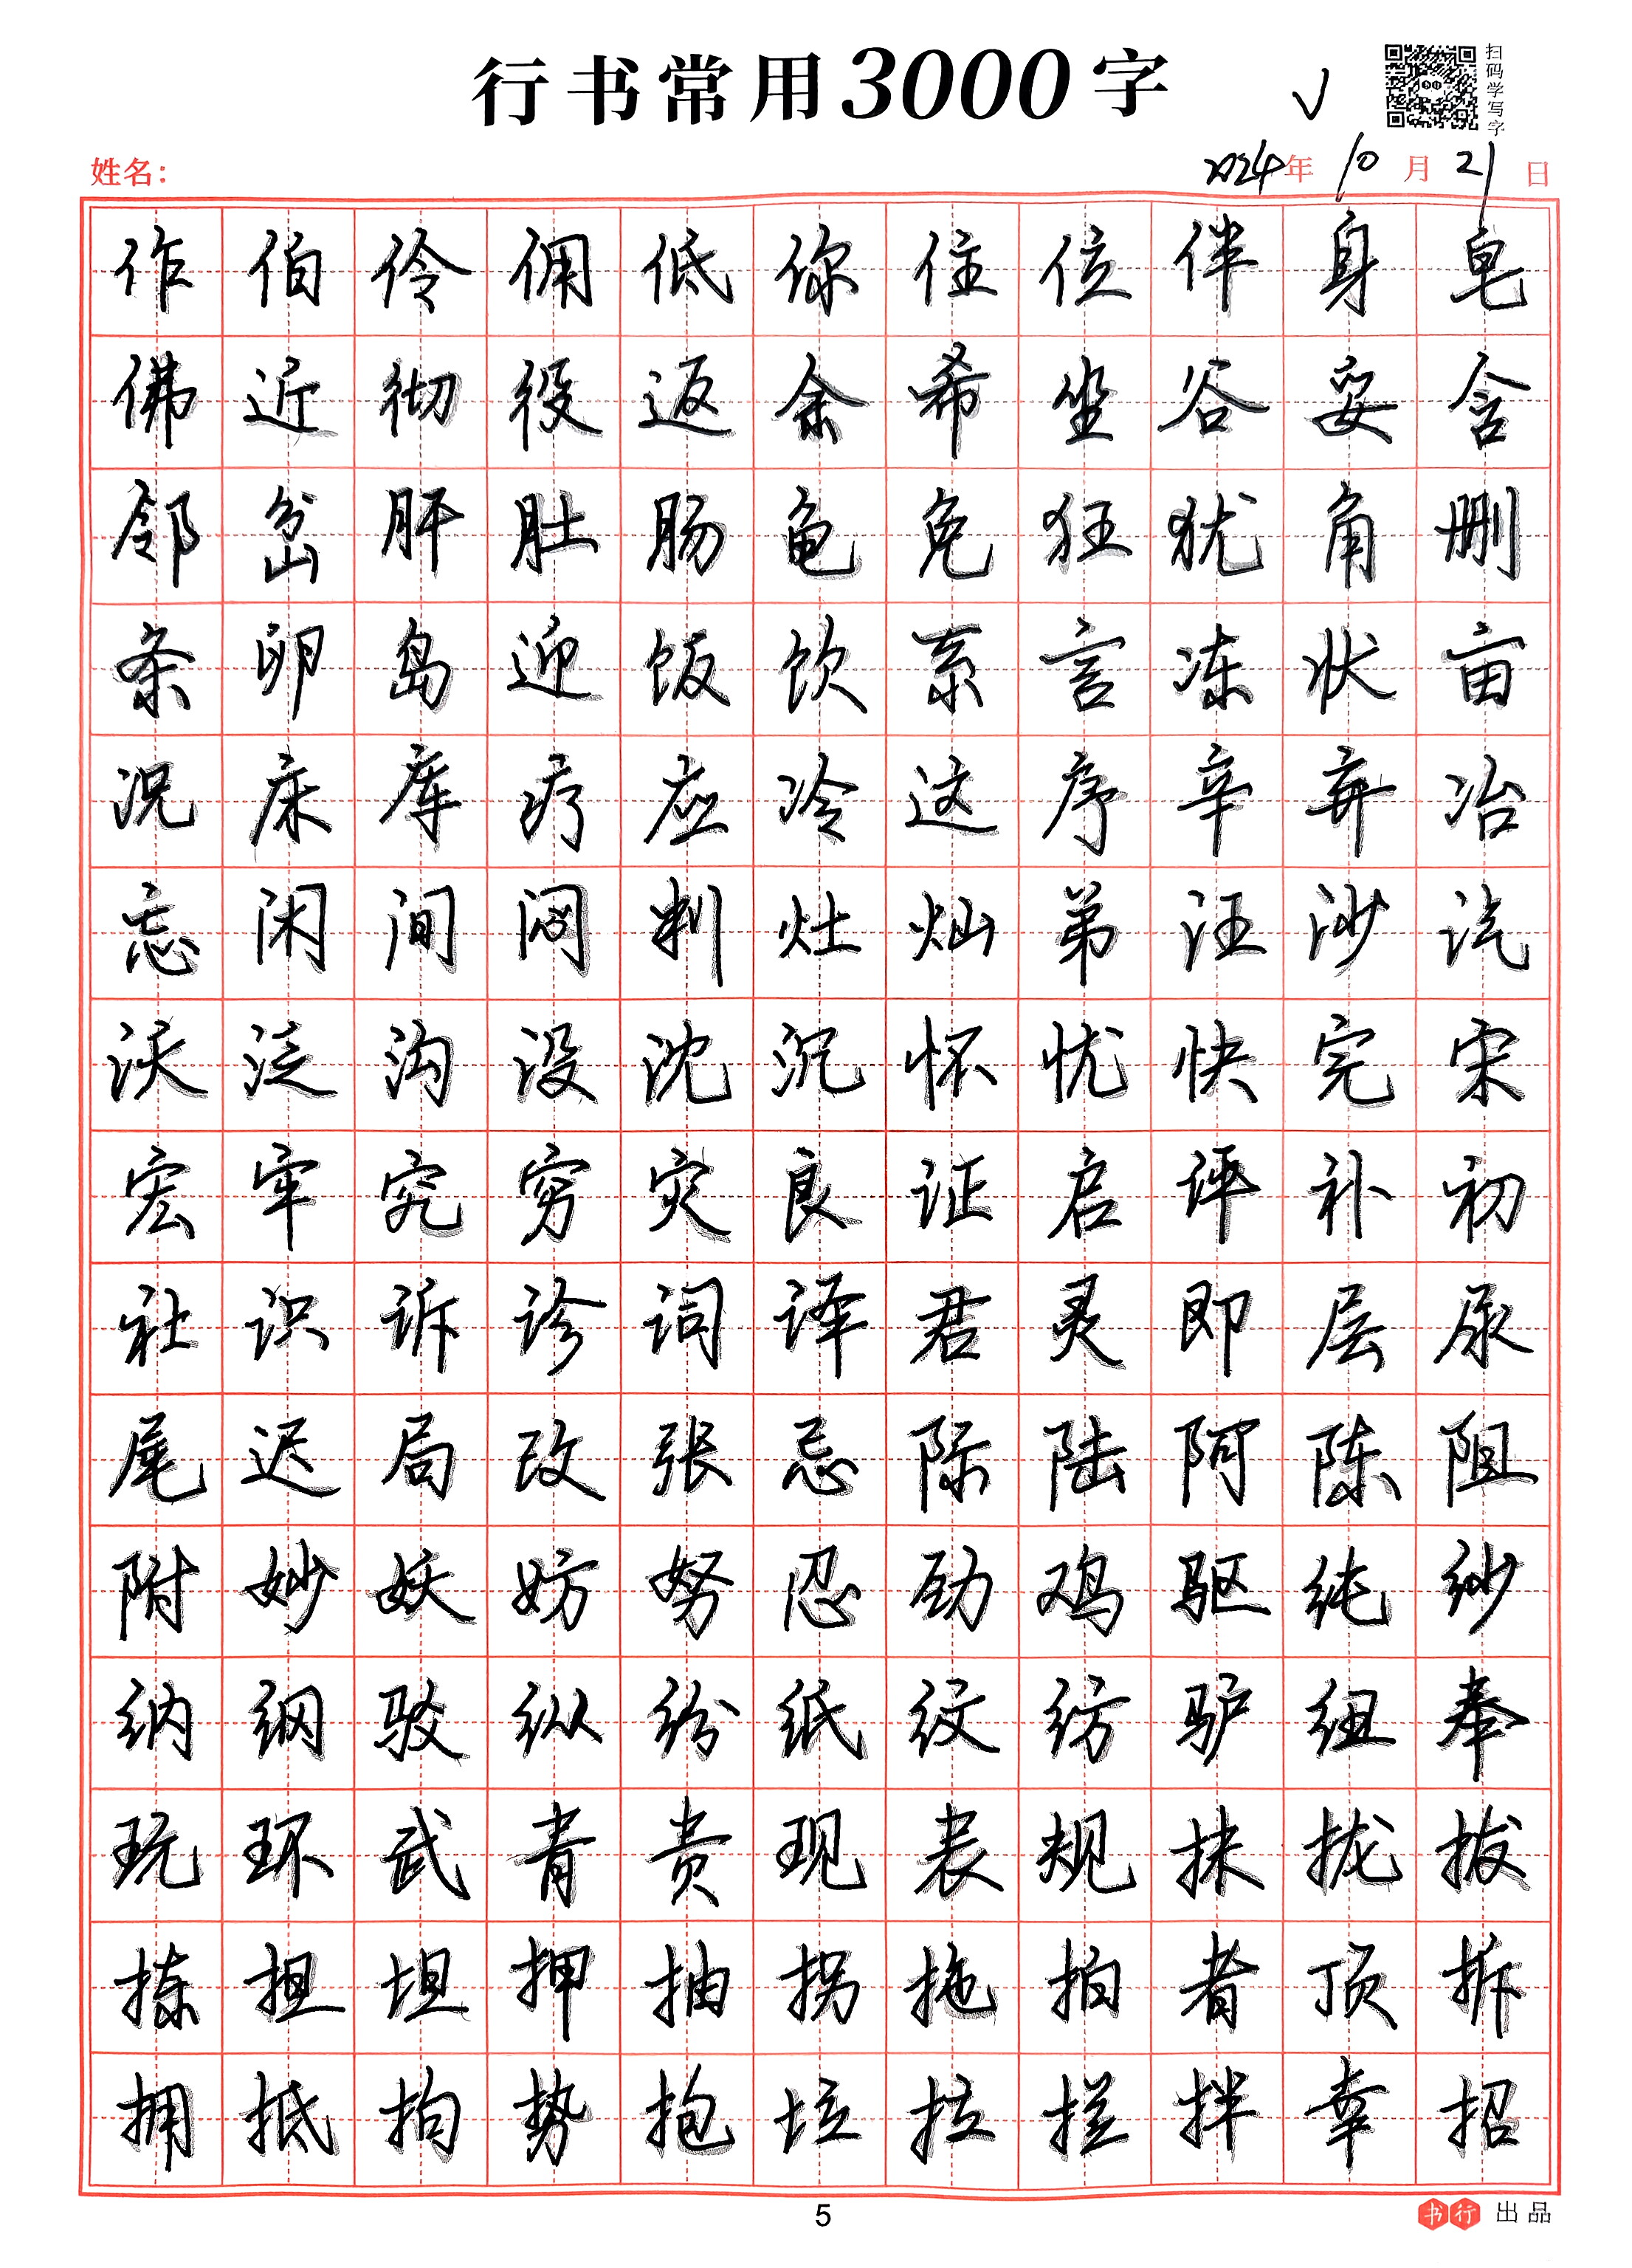 行书常用3000字 √
扫码学写字
姓名： 2024年10月21日
作伯伶佣低你住位伴身皂
佛近彻役返余希坐谷妥含
邻岔肝肚肠龟免狂犹角删
条卵岛迎饭饮系言冻状亩
况床库疗应冷这序辛弃冶
忘闲间闷判灶灿弟汪沙汽
沃泛沟没沈沉怀忧快完宋
宏牢究穷灾良证启评补初
社识诉诊词译君灵即层尿
尾迟局改张忌际陆阿陈阻
附妙妖妨努忍劲鸡驱纯纱
纳纲驳纵纷纸纹纺驴纽奉
玩环武青责现表规抹拢拔
拣担坦押抽拐拖拍者顶拆
拥抵拘势抱垃拉拦拌幸招
5
书行 出品